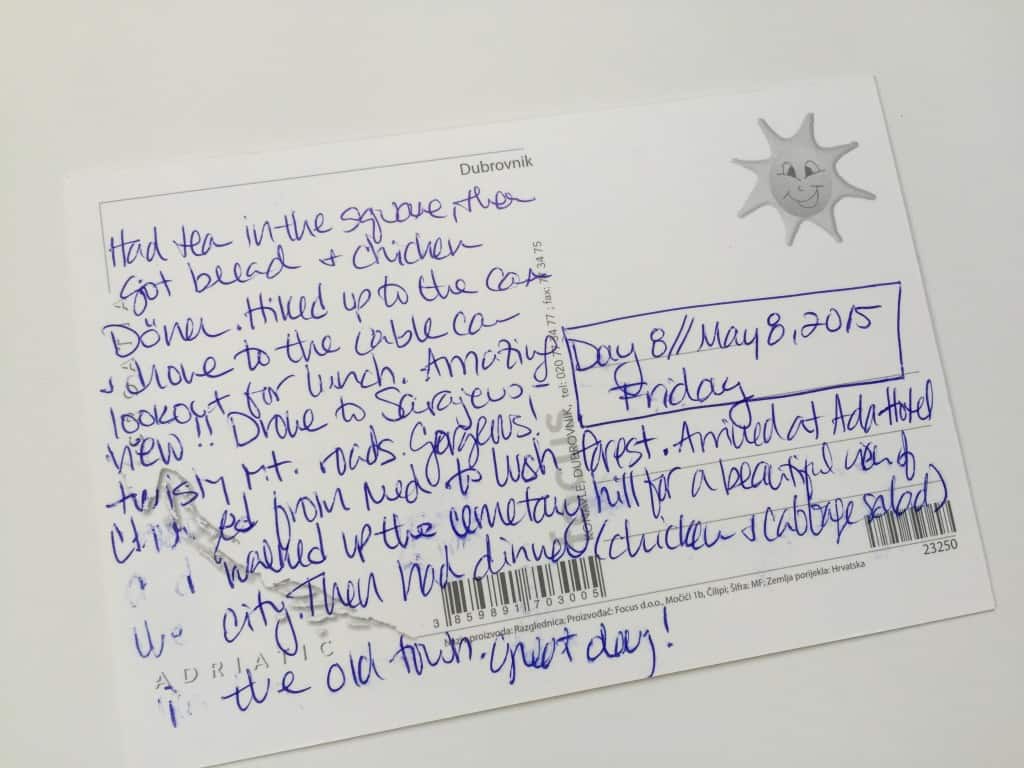 Dubrovnik
Had tea in the square, then
got bread + chicken
Döner. Hiked up to the car
+ drove to the cable car
lookout for lunch. Amazing
view!! Drove to Sarajevo
twisty Mt. roads. Gorgeous!
from Med to lush forest. Arrived at Ada Hotel
walked up the cemetary hill for a beautiful view of
the city. Then had dinner (chicken + cabbage salad)
in the old town. Great day!
Day 8 // May 8, 2015
Friday
tel: 020 77 34 77 ; fax: 77 34 75
DUBROVNIK,
ADRIATIC
3 859891 703005
Naziv proizvoda: Razglednica; Proizvođač: Focus d.o.o., Močići 1b, Čilipi; Šifra: MF; Zemlja porijekla: Hrvatska
23250